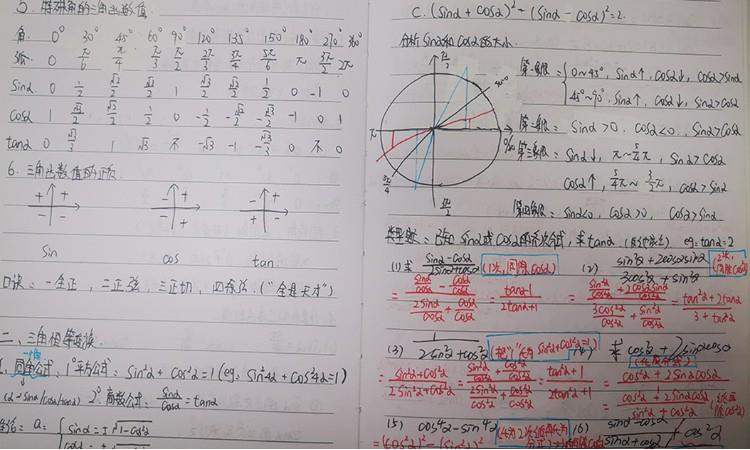 5. 特殊角的三角函数值.
角. 0° 30° 45° 60° 90° 120° 135° 150° 180° 270° 360°
弧. 0 π/6 π/4 π/3 π/2 2π/3 3π/4 5π/6 π 3π/2 2π
Sinα 0 1/2 √2/2 √3/2 1 √3/2 √2/2 1/2 0 -1 0
cosα 1 √3/2 √2/2 1/2 0 -1/2 -√2/2 -√3/2 -1 0 1
tanα 0 √3/3 1 √3 不 -√3 -1 -√3/3 0 不 0
6. 三角函数值的正负.
+ + + +
- - - +
- + + -
sin cos tan
口诀: 一全正, 二正弦, 三正切, 四余弦. ("全是天才")
二、三角恒等变换
1. 同角公式. 1°平方公式: Sin²α + cos²α = 1 (eg: Sin²4α + cos²4α = 1)
2°商数公式: sinα/cosα = tanα
α = { sinα = ±√1-cos²α
C. (Sinα + cosα)² + (Sinα - cosα)² = 2.
分析Sinα和cosα的大小.
π/2
45°
π
0/2π
5π/4
3π/2
第一象限 = { 0~45°, Sinα↑, cosα↓, cosα>sinα
45°~90°. Sinα↑, cosα↓, sinα>cosα
第二象限: Sinα>0. cosα<0. Sinα>cosα
第三象限 = Sinα↓, π~5/4π, Sinα>cosα
cosα↑, 5/4π~3/2π, cosα>Sinα
第四象限: Sinα<0, cosα>0, cosα>sinα
类型题: 已知sinα或cosα的齐次分式, 求tanα eg: tanα=2
(1) 求 sinα-cosα/2sinα+cosα (1次, 同除cosα) (2) sin²α+2cosαsinα/3cos²α+sin²α
= (sinα/cosα - cosα/cosα)/(2sinα/cosα + cosα/cosα) = tanα-1/2tanα+1 = (sin²α/cos²α + 2cosαsinα/cos²α)/(3cos²α/cos²α + sin²α/cos²α) = tan²α+2tanα/3+tan²α
(3) 1/2sin²α+cos²α (把"1"化为sin²α+cos²α=1) (4) 求 cos²α + 2sinαcosα
= sin²α+cos²α/2sin²α+cos²α = (sin²α/cos²α + cos²α/cos²α)/(2sin²α/cos²α + cos²α/cos²α) = tan²α+1/2tan²α+1 = cos²α+2sinαcosα/1
= cos²α+2sinαcosα/sin²α+cos²α
(5) cos⁴α-sin⁴α (6) sinα-cosα/sinα+cosα + cos²α
= (cos²α)²-(sin²α)²